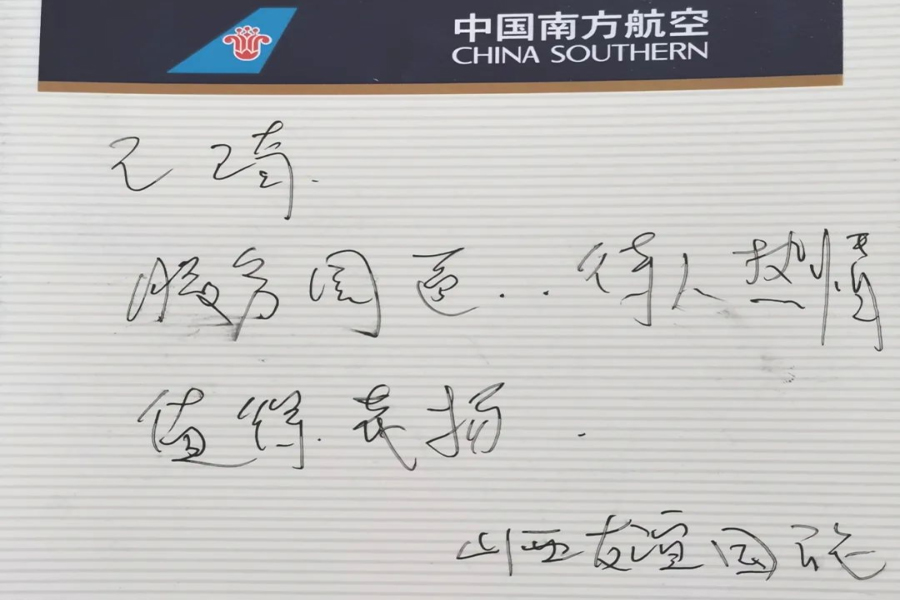 中国南方航空
CHINA SOUTHERN
服务周到..待人热情
值得.表扬.
山西友谊国旅